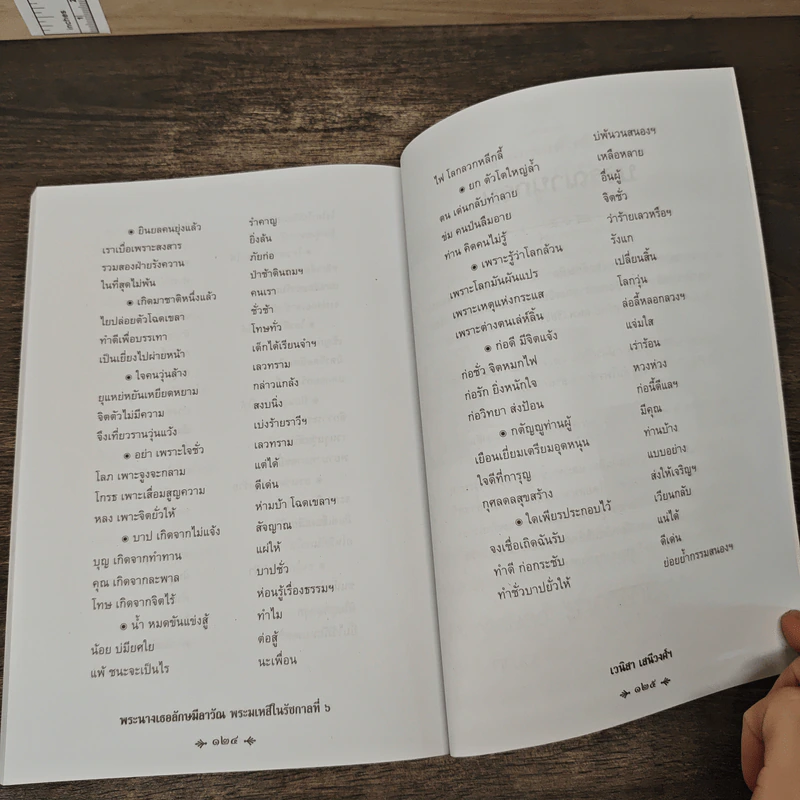 inches
◉ ยินยลคนยุ่งแล้ว รำคาญ
เราเบื่อเพราะสงสาร ยิ่งล้น
รวมสองฝ่ายรังควาน ภัยก่อ
ในที่สุดไม่พ้น ป่าช้าดินถมฯ
◉ เกิดมาชาติหนึ่งแล้ว คนเรา
ไยปล่อยตัวโฉดเขลา ชั่วช้า
ทำดีเพื่อบรรเทา โทษทั่ว
เป็นเยี่ยงไปฝ่ายหน้า เด็กได้เรียนจำฯ
◉ ใจคนวุ่นล้าง เลวทราม
ยุแหย่หยันเหยียดหยาม กล่าวแกล้ง
จิตตัวไม่มีความ สงบนิ่ง
จึงเที่ยวรานวุ่นแว้ง เบ่งร้ายราวีฯ
◉ อย่า เพราะใจชั่ว เลวทราม
โลภ เพาะจูงจะกลาม แต่ได้
โกรธ เพาะเสื่อมสูญความ ดีเด่น
หลง เพาะจิตยั่วให้ ห่ามบ้า โฉดเขลาฯ
◉ บาป เกิดจากไม่แจ้ง สัจญาณ
บุญ เกิดจากทำทาน แผ่ให้
คุณ เกิดจากละพาล บาปชั่ว
โทษ เกิดจากจิตไร้ ห่อนรู้เรื่องธรรมฯ
◉ น้ำ หมดขันแข่งสู้ ทำไม
น้อย บ่มียศไย ต่อสู้
แพ้ ชนะจะเป็นไร นะเพื่อน
พระนางเธอลักษมีลาวัณ พระมเหสีในรัชกาลที่ ๖
๑๒๔
ไฟ โลกลวกหลีกลี้ บ่พ้นวนสนองฯ
◉ ยก ตัวโตใหญ่ล้ำ เหลือหลาย
ตน เด่นกลับทำลาย อื่นผู้
ข่ม คนป่นลืมอาย จิตชั่ว
ท่าน คิดคนไม่รู้ ว่าร้ายเลวหรือฯ
◉ เพราะรู้ว่าโลกล้วน รังแก
เพราะโลกมันผันแปร เปลี่ยนสิ้น
เพราะเหตุแห่งกระแส โลกวุ่น
เพราะต่างตนเล่ห์ลิ้น ล่อลี้หลอกลวงฯ
◉ ก่อดี มีจิตแจ้ง แจ่มใส
ก่อชั่ว จิตหมกไฟ เร่าร้อน
ก่อรัก ยิ่งหนักใจ หวงห่วง
ก่อวิทยา ส่งป้อน ก่อนี้ดีแลฯ
◉ กตัญญูท่านผู้ มีคุณ
เยือนเยี่ยมเตรียมอุดหนุน ท่านบ้าง
ใจดีที่การุญ แบบอย่าง
กุศลดลสุขสร้าง ส่งให้เจริญฯ
◉ ใดเพียรประกอบไว้ เวียนกลับ
จงเชื่อเถิดฉันรับ แน่ได้
ทำดี ก่อกระชับ ดีเด่น
ทำชั่วบาปยั่วให้ ย่อยย้ำกรรมสนองฯ
เวนิสา เสนีวงศ์ฯ
๑๒๕